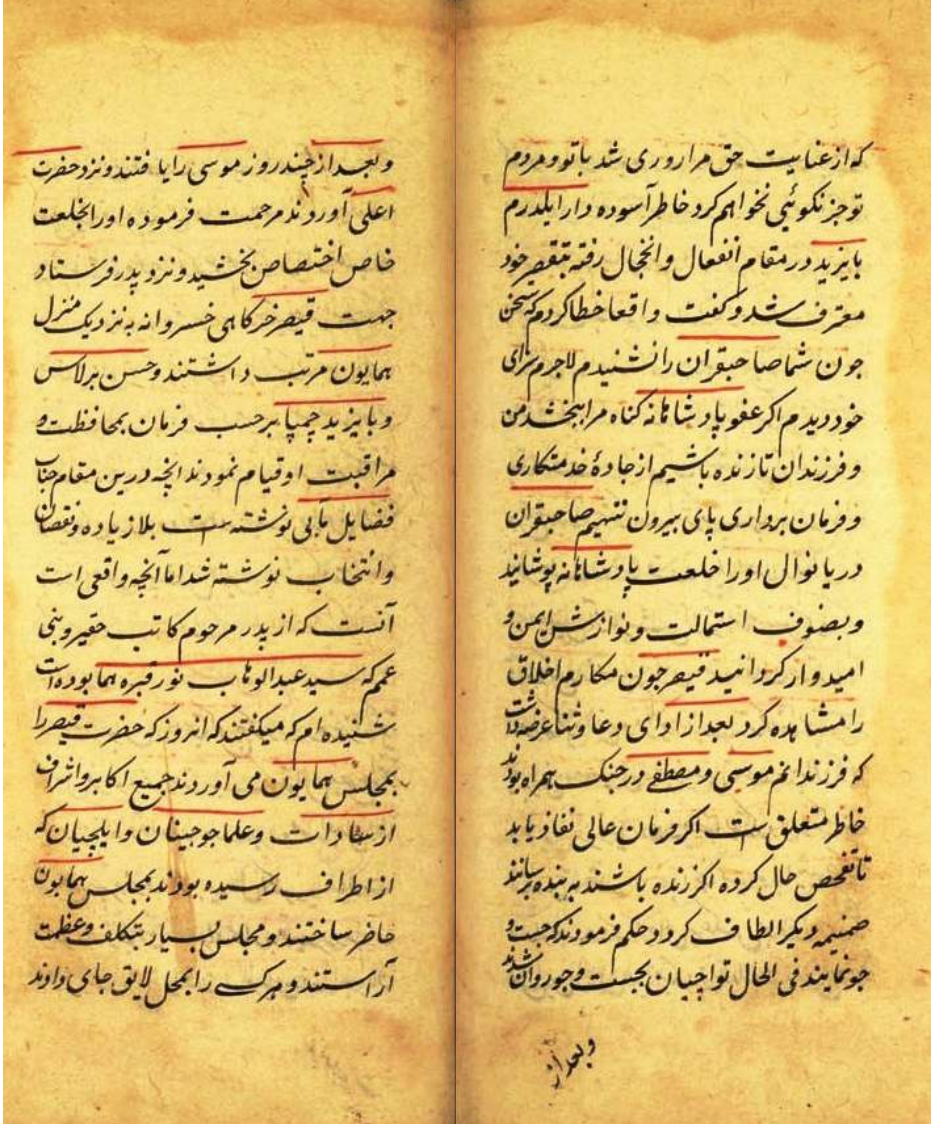 که از عنایت حق مرا روزی شد با تو و مردم
تو جز نکوئی نخواهم کرد خاطر آسوده دار ایلدرم
بایزید در مقام انفعال و انخجال رفته بتقصیر خود
معترف شد و کفت واقعا خطا کردم که سخن
جون شما صاحبقران را نشنیدم لاجرم سزای
خود دیدم اکر عفو پادشاهانه کناه مرا ببخشد من
و فرزندان تا زنده باشیم از جادهٔ خدمتکاری
و فرمان برداری پای بیرون ننهیم صاحبقران
دریا نوال او را خلعت پادشاهانه پوشانید
و بصنوف استمالت و نوازش ایمن و
امیدوار کردانید قیصر جون مکارم اخلاق
را مشاهده کرد بعد از ادای دعا و ثنا عرضه داشت
که فرزندانم موسی و مصطفی در جنک همراه بودند
خاطر متعلق است اکر فرمان عالی نفاذ یابد
تا تفحص حال کرده اکر زنده باشند به بنده برسانند
ضمیمه دیکر الطاف کردد حکم فرمودند که جست و
جو نمایند فی الحال تواجیان بجست و جو روان شدند
وبعد از
و بعد از چند روز موسی را یافتند و نزد حضرت
اعلی آوردند مرحمت فرموده او را بخلعت
خاص اختصاص بخشید و نزد پدر فرستاد
جهت قیصر خرکاهی خسروانه به نزدیک منزل
همایون مرتب داشتند و حسن برلاس
و بایزید چمپا بر حسب فرمان بمحافظت و
مراقبت او قیام نمودند انچه درین مقام جناب
فضایل مآبی نوشته است بلا زیاده و نقصان
و انتخاب نوشته شد اما آنچه واقعی است
آنست که از پدر مرحوم کاتب حقیر و بنی
عمم که سید عبدالوهاب نور قبره هما بوده است
شنیده ام که میکفتند که انروز که حضرت قیصر را
بمجلس همایون می آوردند جمیع اکابر و اشراف
از سادات و علما و ایلچیان که
از اطراف رسیده بودند بمجلس همایون
حاضر ساختند و مجلس بسیار بتکلف و عظمت
آراستند و هر کسی را بمحل لایق جای دادند